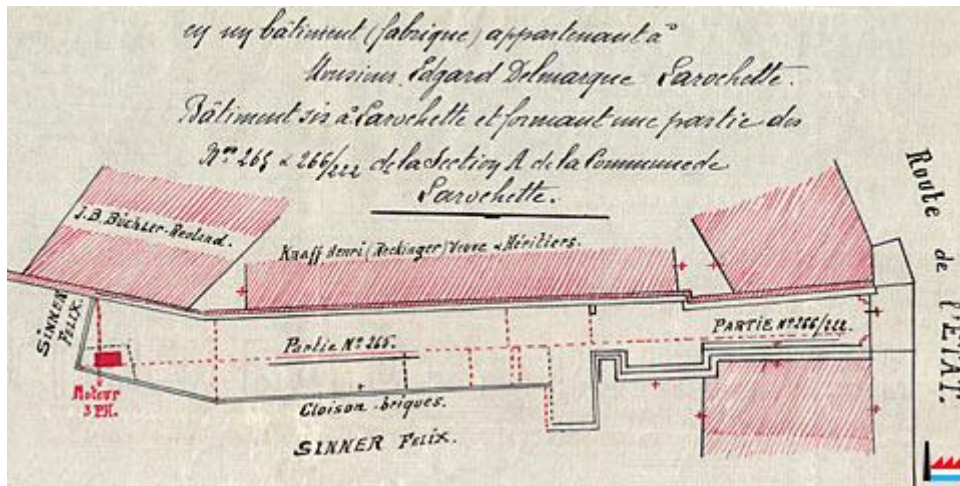 en un bâtiment (fabrique) appartenant à
Monsieur Edgard Delmarque Larochette.
Bâtiment sis à Larochette et formant une partie des
Nos 265 & 266/222 de la Section A de la Commune de
Larochette.
J.B. Büchler-Reoland.
Knaff Henri (Reckinger) Veuve & Héritiers.
Route de l'ETAT.
SINNER FELIX.
Partie No 265.
PARTIE No 266/222.
Moteur
3 PH.
Cloison-briques.
SINNER FELIX.